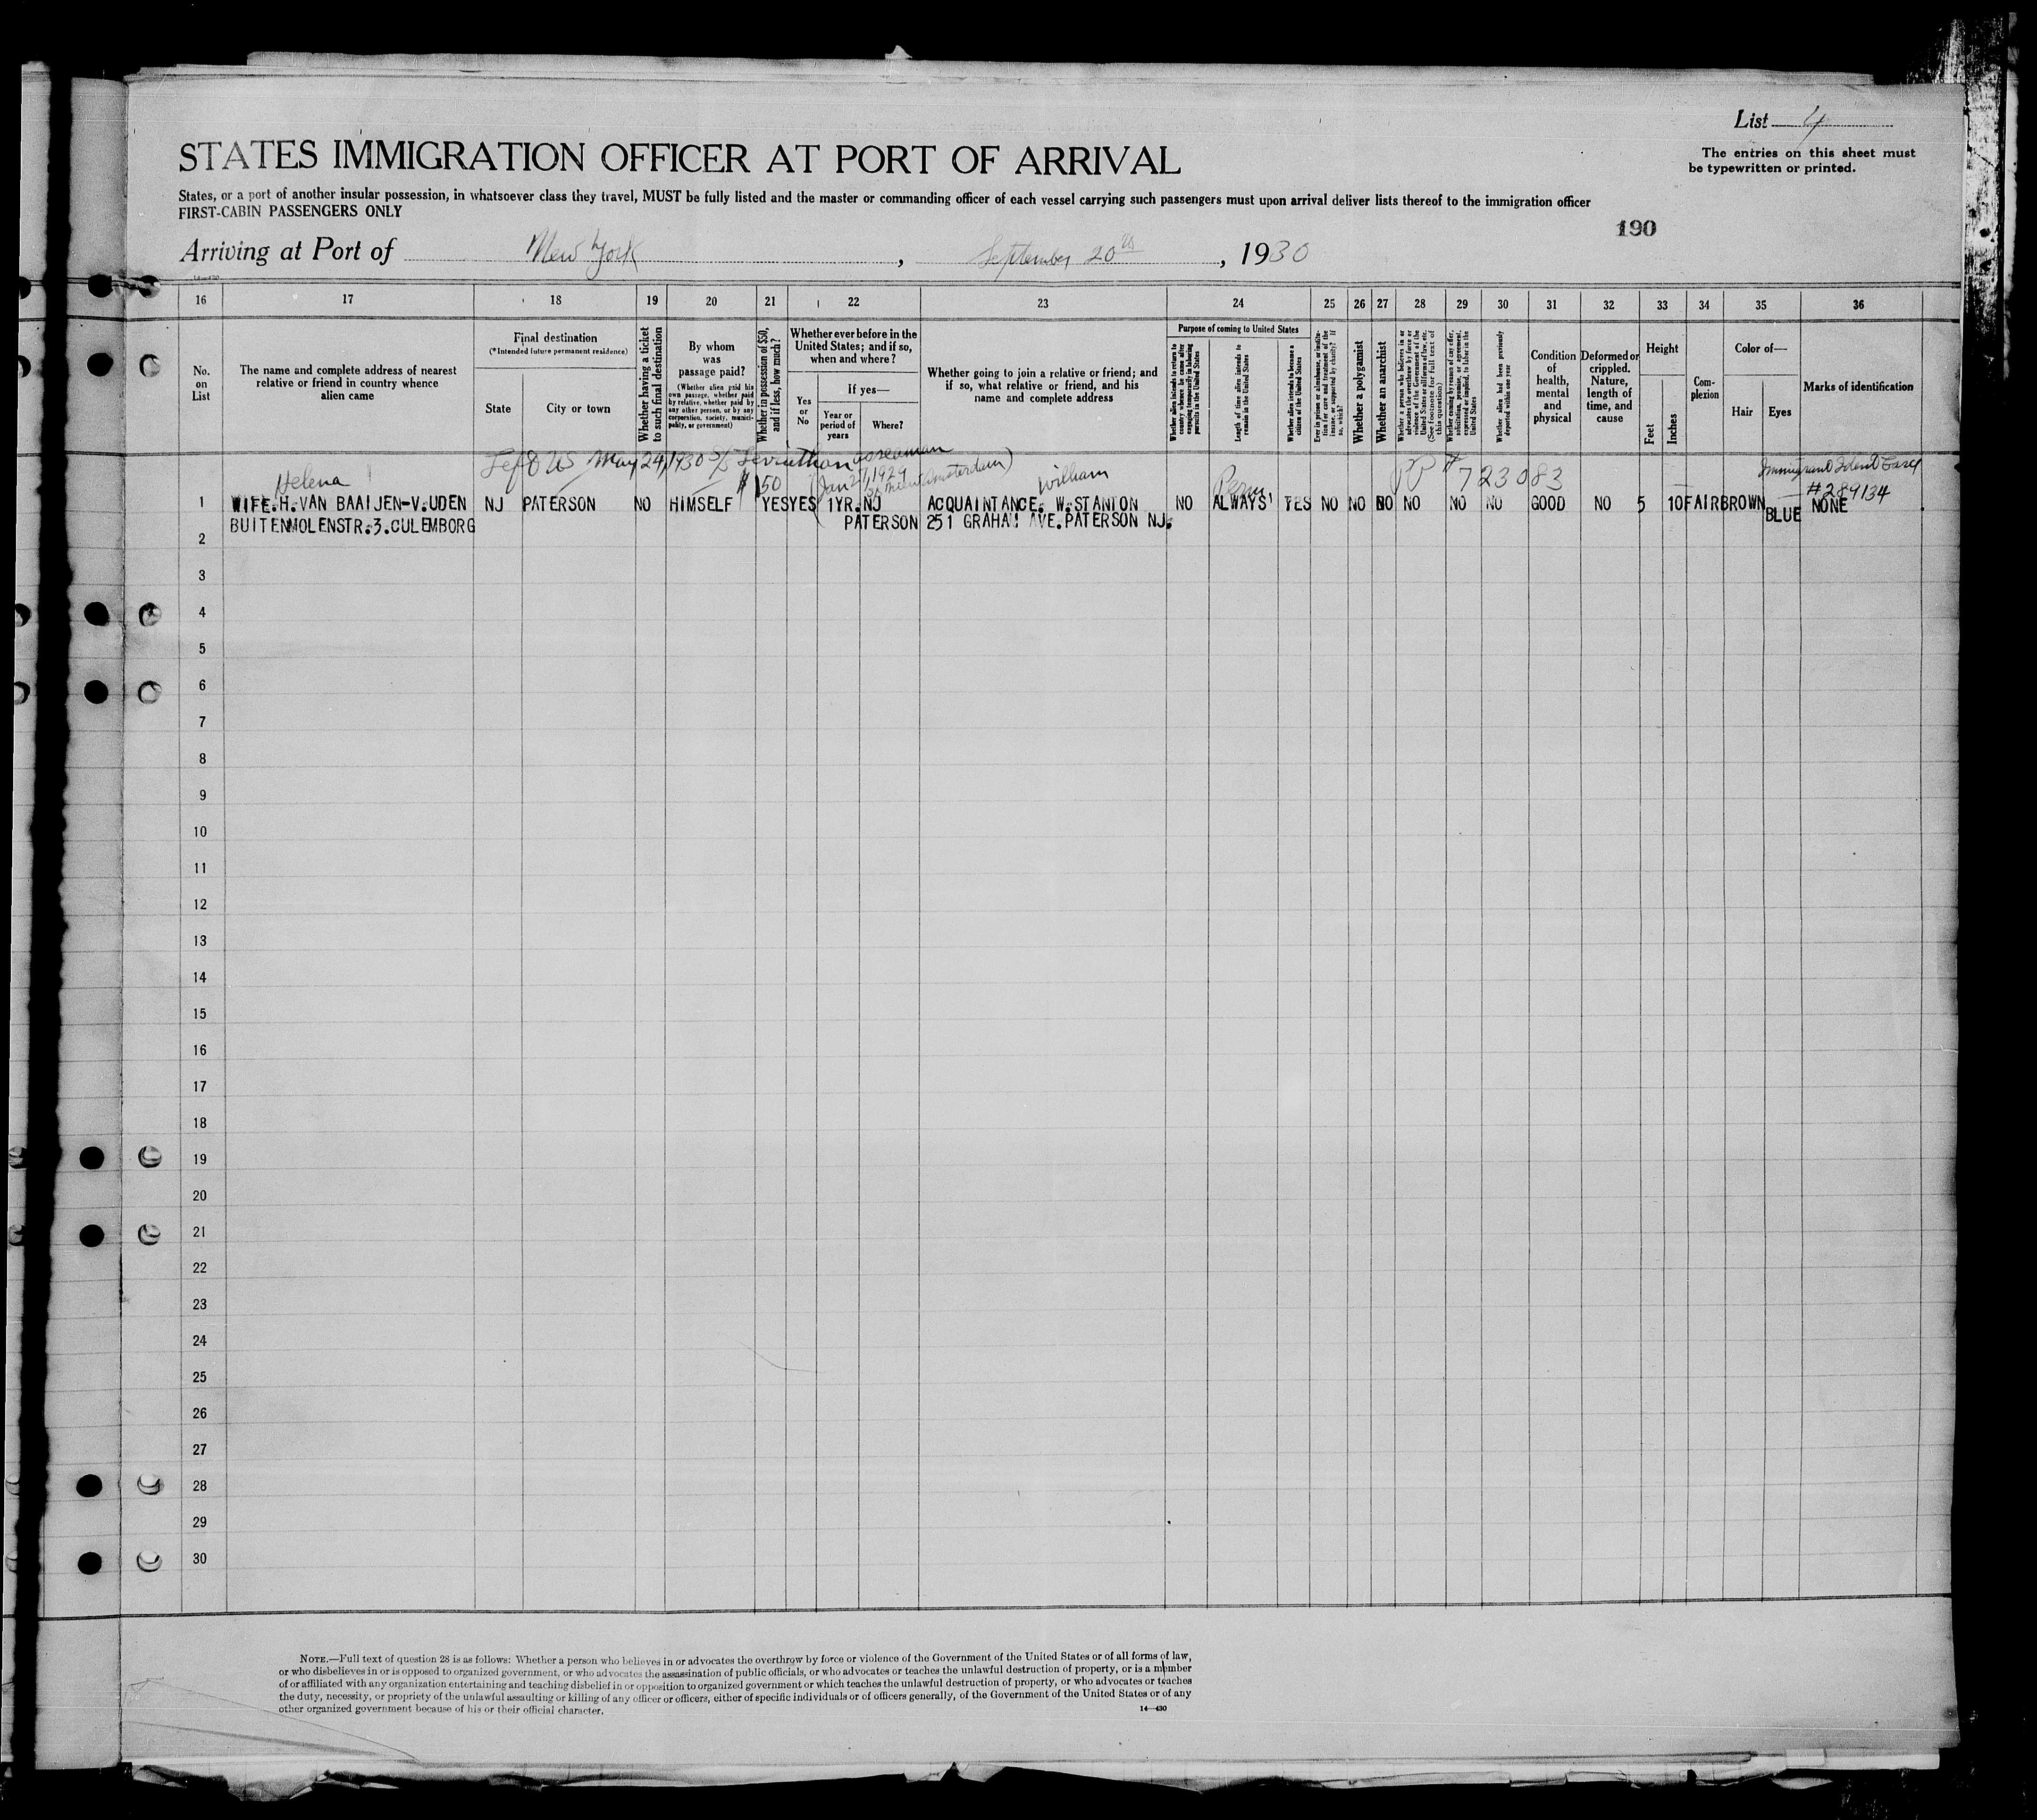 List 4
The entries on this sheet must
be typewritten or printed.
STATES IMMIGRATION OFFICER AT PORT OF ARRIVAL
States, or a port of another insular possession, in whatsoever class they travel, MUST be fully listed and the master or commanding officer of each vessel carrying such passengers must upon arrival deliver lists thereof to the immigration officer
FIRST-CABIN PASSENGERS ONLY
190
Arriving at Port of New York, September 20th, 1930
16 17 18 19 20 21 22 23 24 25 26 27 28 29 30 31 32 33 34 35 36
No. on List
The name and complete address of nearest
relative or friend in country whence
alien came
Final destination
(*Intended future permanent residence)
State
City or town
Whether having a ticket
to such final destination
By whom
was
passage paid?
(Whether alien paid his
own passage, whether paid
by relative, whether paid by
any other person, or by any
corporation, society, munici-
pality, or government)
Whether in possession of $50,
and if less, how much?
Whether ever before in the
United States; and if so,
when and where?
Yes
or
No
If yes—
Year or
period of
years
Where?
Whether going to join a relative or friend; and
if so, what relative or friend, and his
name and complete address
Purpose of coming to United States
Whether alien intends to return to
country whence he came after
engaging temporarily in laboring
pursuits in the United States
Length of time alien intends to
remain in the United States
Whether alien intends to become a
citizen of the United States
Ever in prison or almshouse, or institu-
tion for care and treatment of the
insane, or supported by charity? If
so, which?
Whether a polygamist
Whether an anarchist
Whether a person who believes in or
advocates the overthrow by force or
violence of the Government of the
United States or all forms of law, etc.
(See footnote for full text of
this question)
Whether coming by reason of any offer,
solicitation, promise, or agreement,
expressed or implied, to labor in the
United States
Whether alien had been previously
deported within one year
Condition
of
health,
mental
and
physical
Deformed or
crippled.
Nature,
length of
time, and
cause
Height
Feet
Inches
Com-
plexion
Color of—
Hair
Eyes
Marks of identification
Left US May 24, 1930 S/S Leviathan as seaman
Helena $150 Jan 27, 1929 Nieuw Amsterdam) William Perm PP # 723083 Immigrant Ident Card
#289134
1 WIFE.H.VAN BAAIJEN-V.UDEN NJ PATERSON NO HIMSELF YES YES 1YR. NJ ACQUAINTANCE. W.STANTON NO ALWAYS YES NO NO NO NO NO NO GOOD NO 5 10 FAIR BROWN BLUE NONE
BUITENMOLENSTR.3.CULEMBORG PATERSON 251 GRAHAM AVE.PATERSON NJ.
2
3
4
5
6
7
8
9
10
11
12
13
14
15
16
17
18
19
20
21
22
23
24
25
26
27
28
29
30
NOTE.—Full text of question 28 is as follows: Whether a person who believes in or advocates the overthrow by force or violence of the Government of the United States or of all forms of law,
or who disbelieves in or is opposed to organized government, or who advocates the assassination of public officials, or who advocates or teaches the unlawful destruction of property, or is a member
of or affiliated with any organization entertaining and teaching disbelief in or opposition to organized government or which teaches the unlawful destruction of property, or who advocates or teaches
the duty, necessity, or propriety of the unlawful assaulting or killing of any officer or officers, either of specific individuals or of officers generally, of the Government of the United States or of any
other organized government because of his or their official character.
14—430